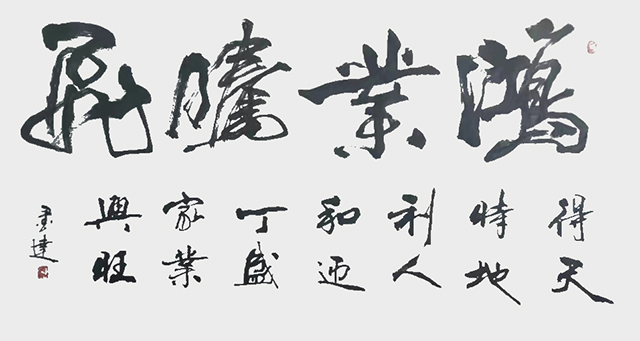 鴻業騰飛
得天
時地
利人
和迎
丁盛
家業
興旺